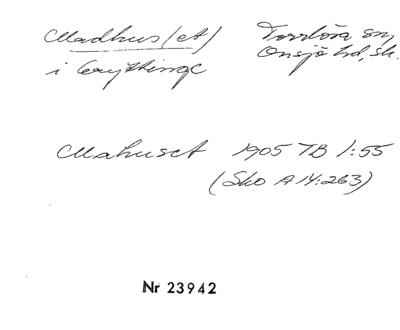 Madhus(et) Torrlösa sn,
i Onsjö hd, sk.
Mahuset 1905 TB 1:55
(Sko A 14:263)
Nr 23942